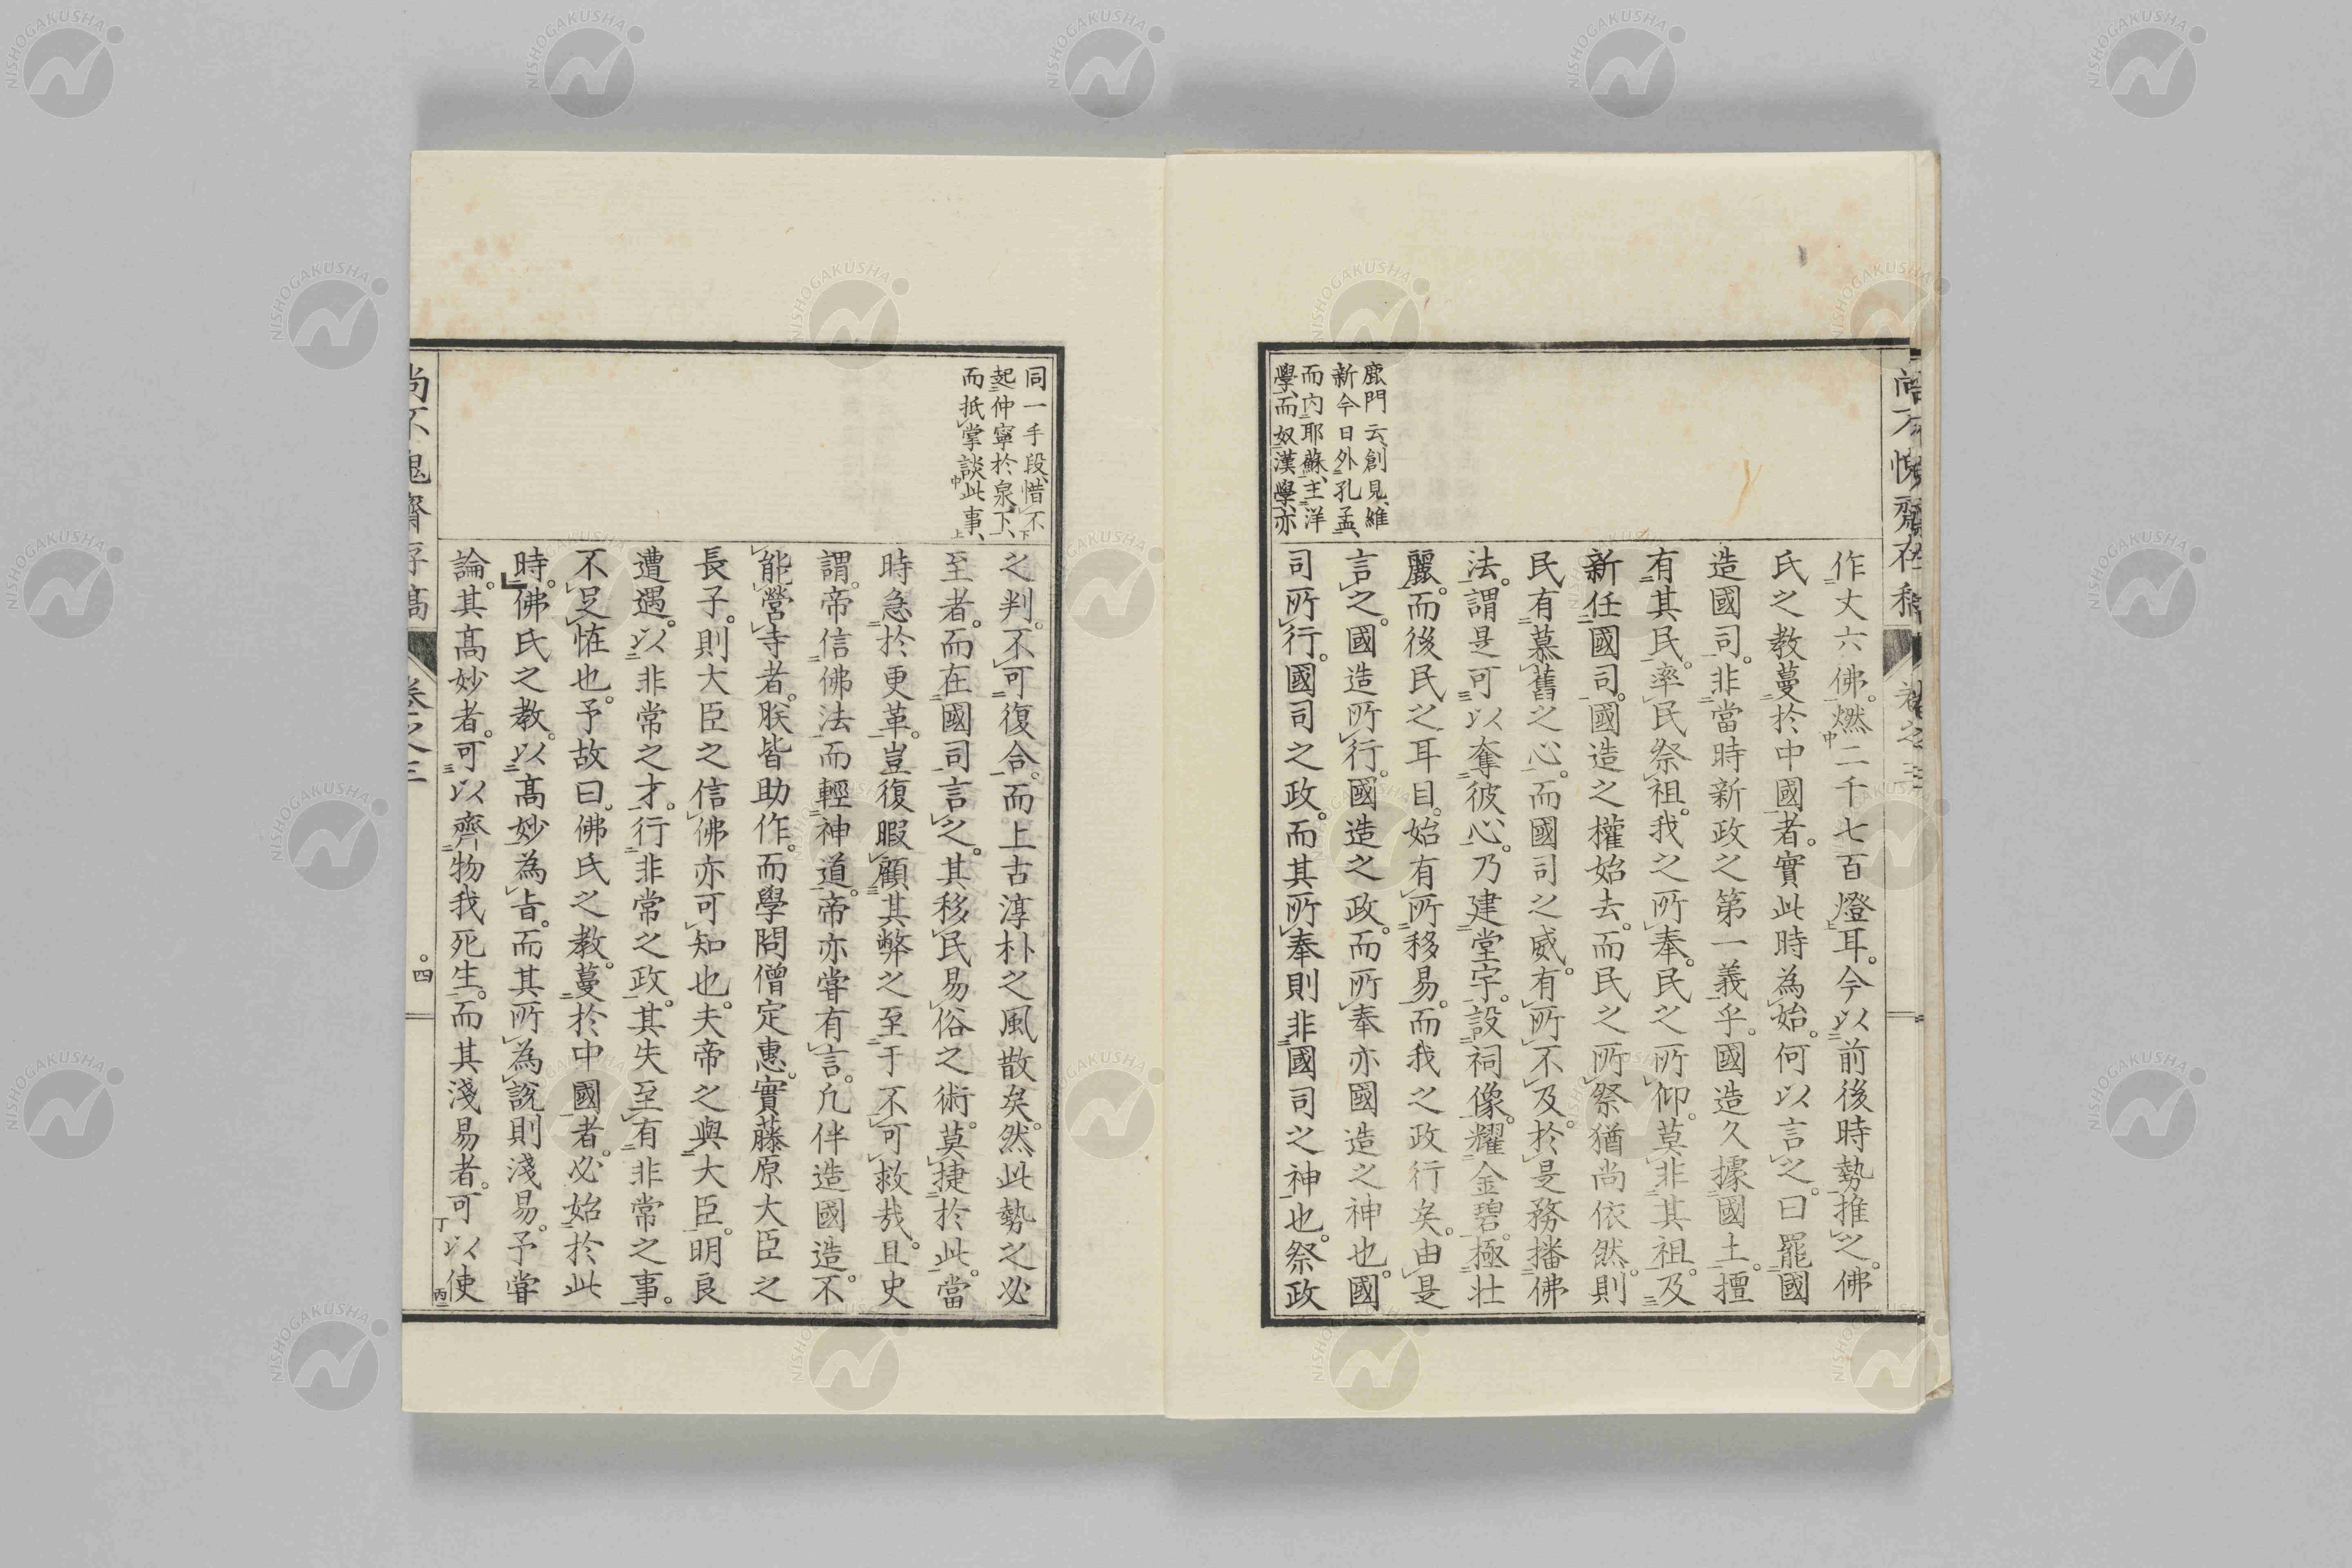 鹿門云、創見、維
新今日外孔孟、
而内耶蘇、主洋
學、而奴漢學、亦
作丈六佛。燃二千七百燈耳。今以前後時勢推之。佛
氏之教蔓於中國者。實此時為始。何以言之。曰罷國
造國司。非當時新政之第一義乎。國造久據國土。擅
有其民。率民祭祖。我之所奉。民之所仰。莫非其祖。及
新任國司。國造之權始去。而民之所祭猶尚依然。則
民有慕舊之心。而國司之威。有所不及。於是務播佛
法。謂是可以奪彼心。乃建堂宇。設祠像。耀金碧。極壮
麗。而後民之耳目。始有所移易。而我之政行矣。由是
言之。國造所行。國造之政。而所奉亦國造之神也。國
司所行。國司之政。而其所奉則非國司之神也。祭政
同一手段、惜不
起仲寧於泉下、
而抵掌談此事、
之判。不可復合。而上古淳朴之風散矣。然此勢之必
至者。而在國司言之。其移民易俗之術。莫捷於此。當
時急於更革。豈復暇顧其弊之至于不可救哉。且史
謂。帝信佛法而輕神道。帝亦嘗有言。凢伴造國造。不
能營寺者。朕皆助作。而學問僧定惠。實藤原大臣之
長子。則大臣之信佛亦可知也。夫帝之與大臣。明良
遭遇。以非常之才。行非常之政。其失至有非常之事。
不足怪也。予故曰。佛氏之教。蔓於中國者。必始於此
時。佛氏之教。以高妙為旨。而其所為説則淺易。予嘗
論。其高妙者。可以齊物我死生。而其淺易者。可以使
尚不愧齋存稿
卷之三
四
NISHOGAKUSHA